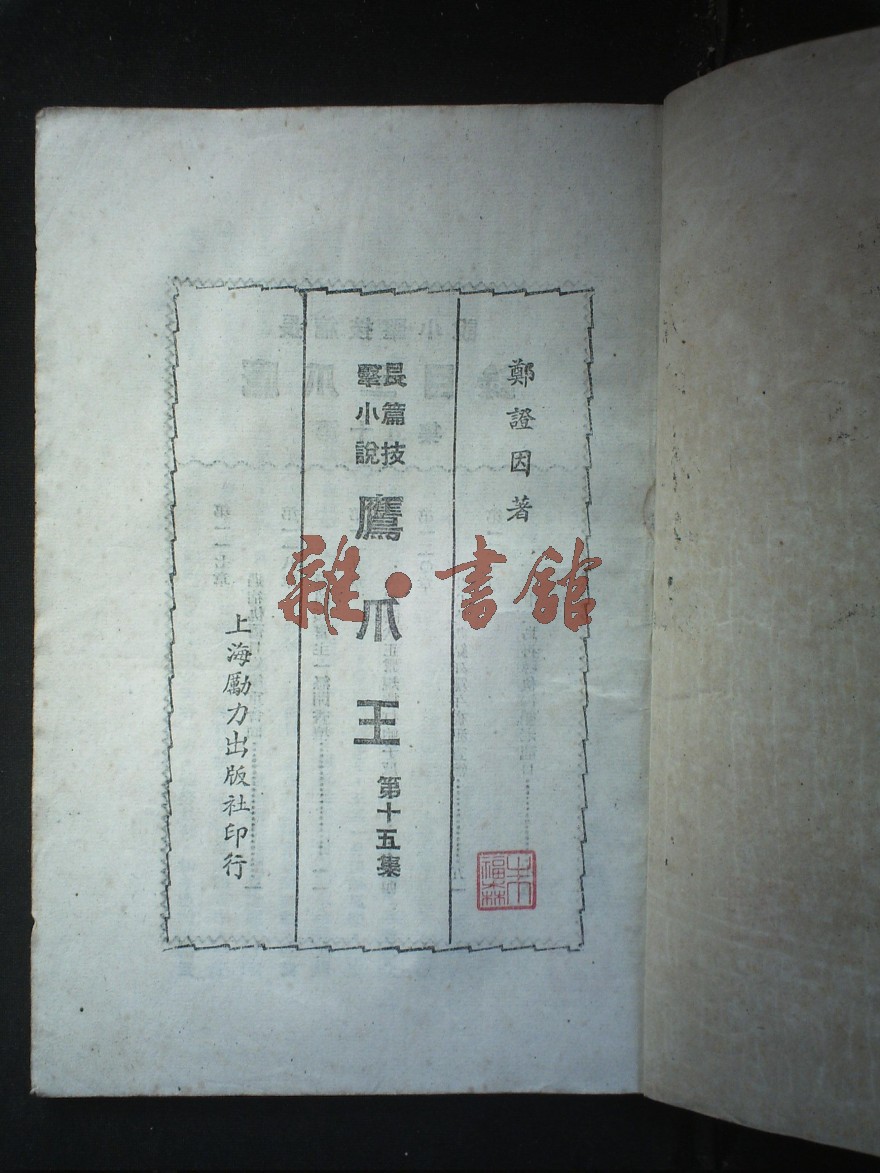 鄭證因著
長篇技
擊小說
鷹爪王
第十五集
上海勵力出版社印行
雜·書館